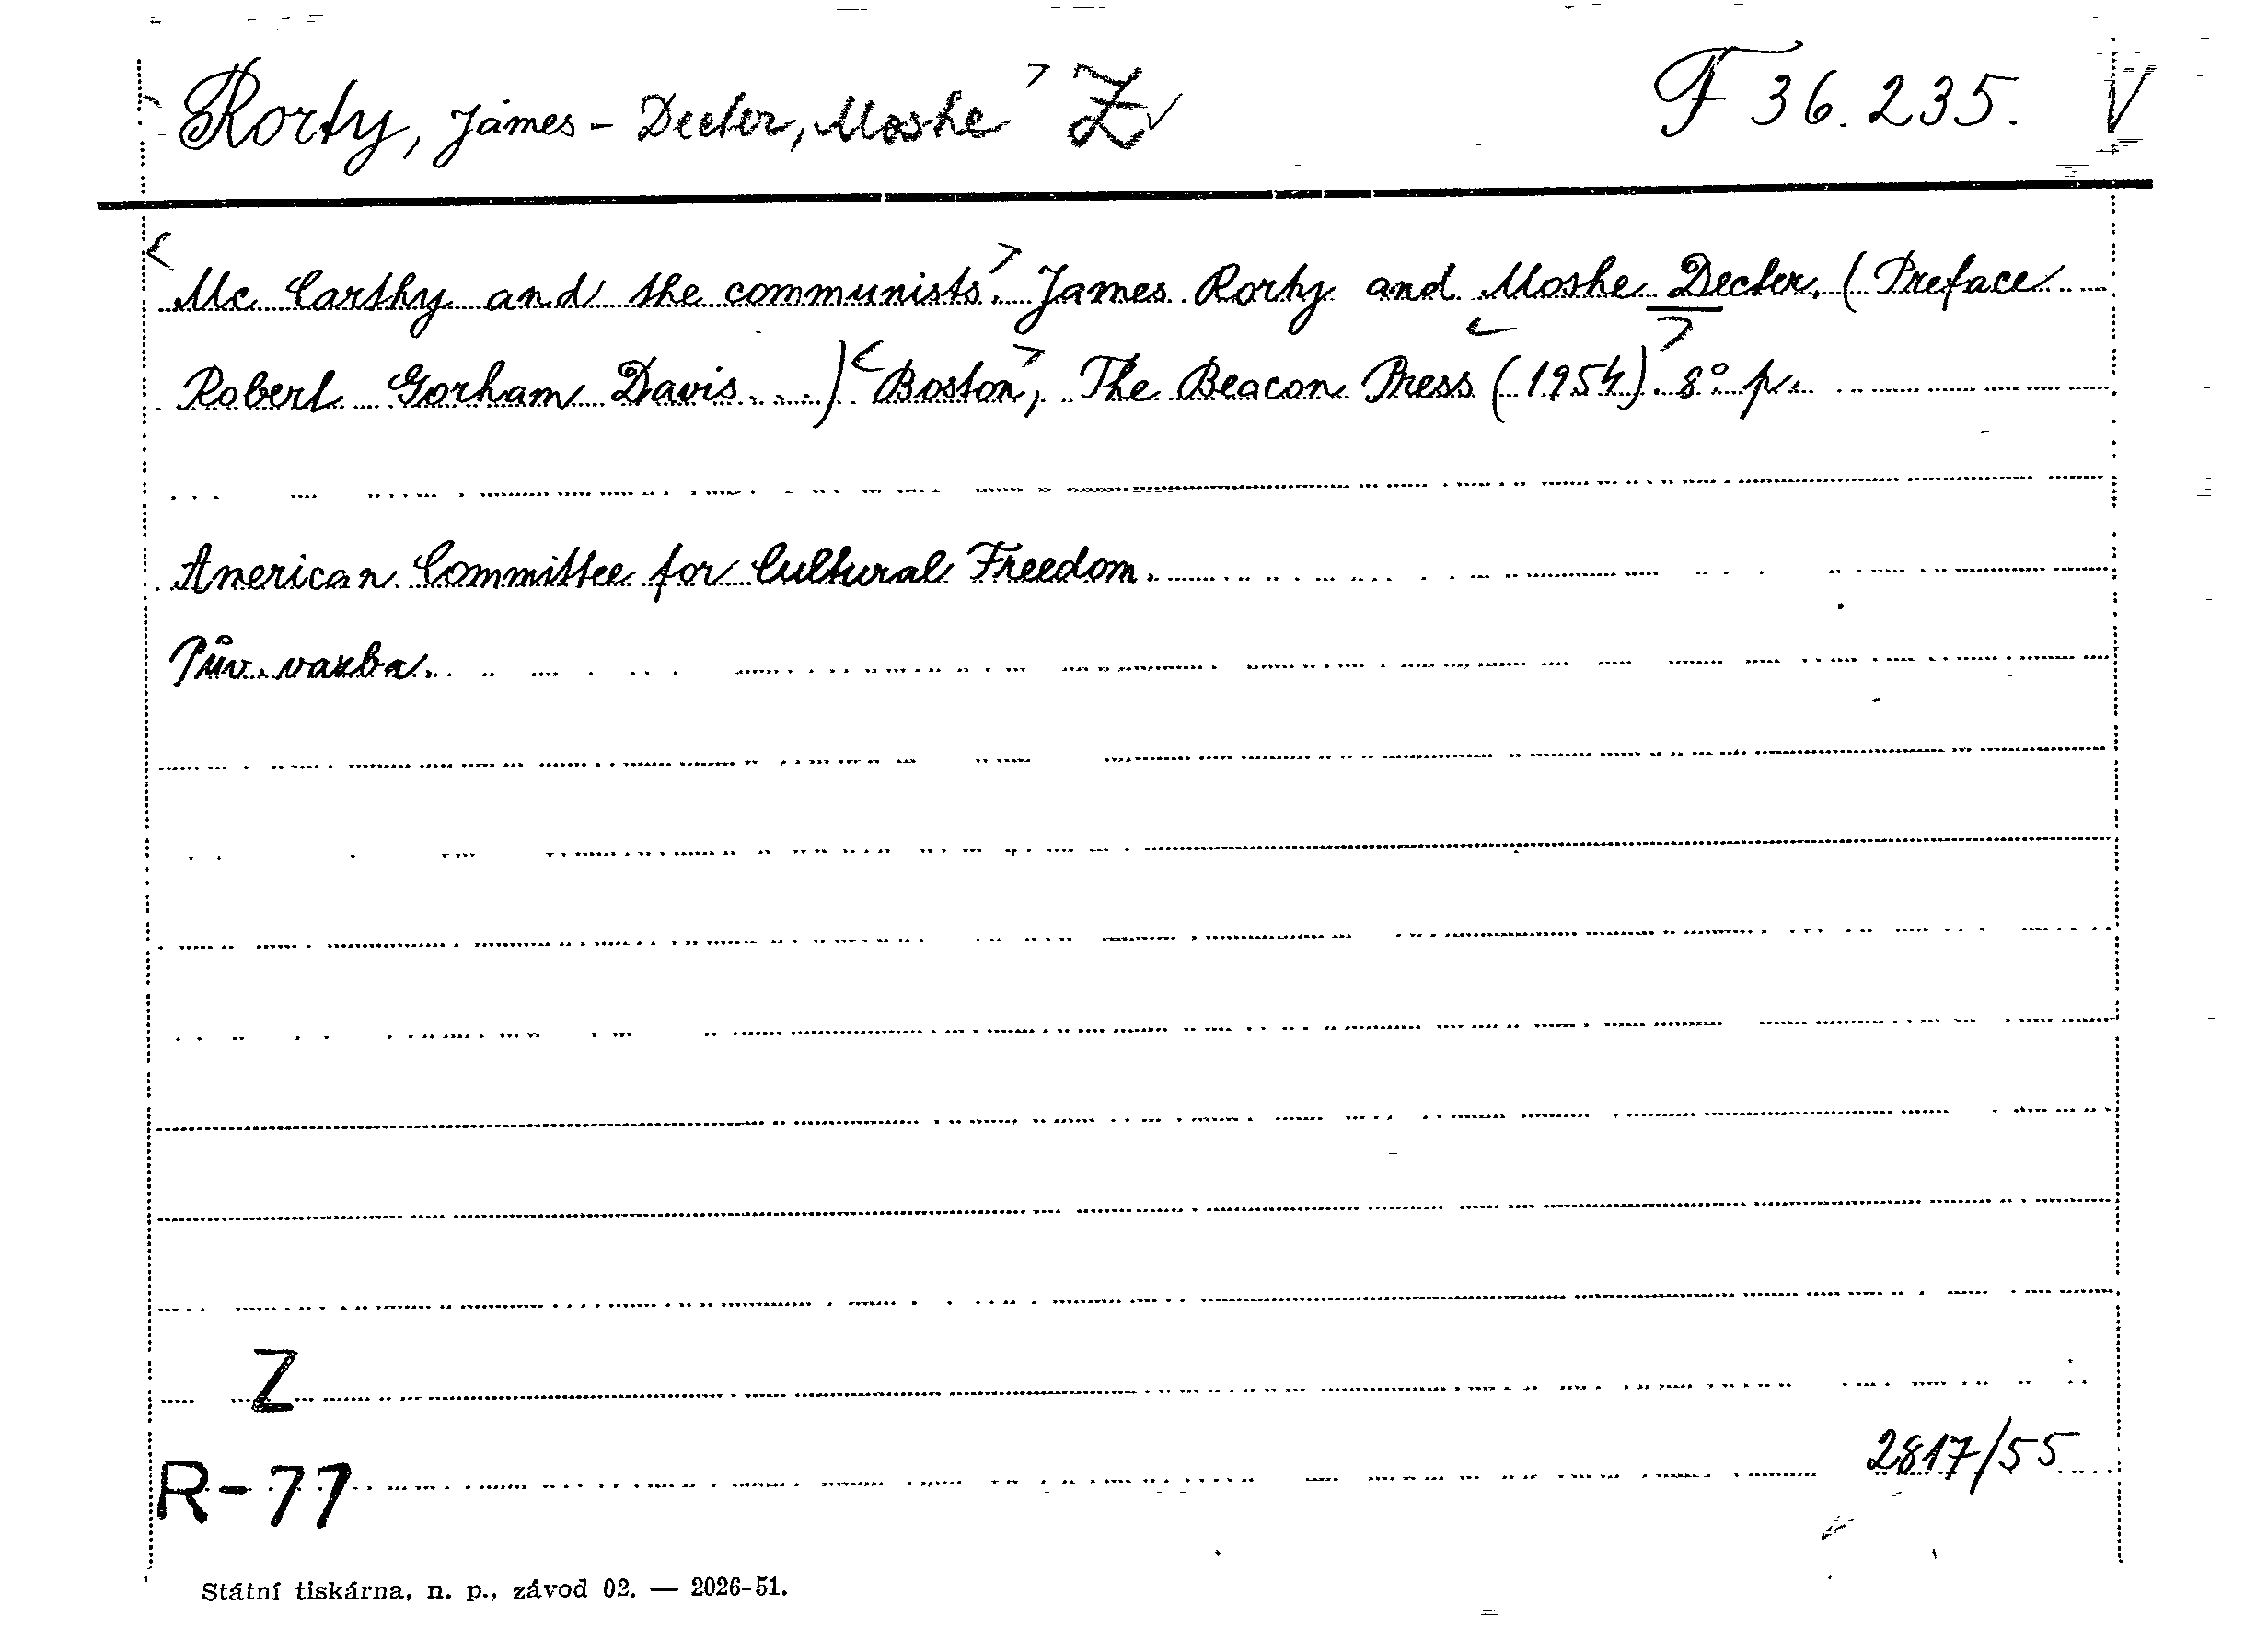 Rorty, James - Decter, Moshe Z F 36.235. V
Mc Carthy and the communists. James Rorty and Moshe Decter. (Preface
Robert Gorham Davis...) Boston, The Beacon Press (1954). 8° p.
American Committee for Cultural Freedom.
Pův. vazba.
Z
2817/55
R-77
Státní tiskárna, n. p., závod 02. — 2026-51.